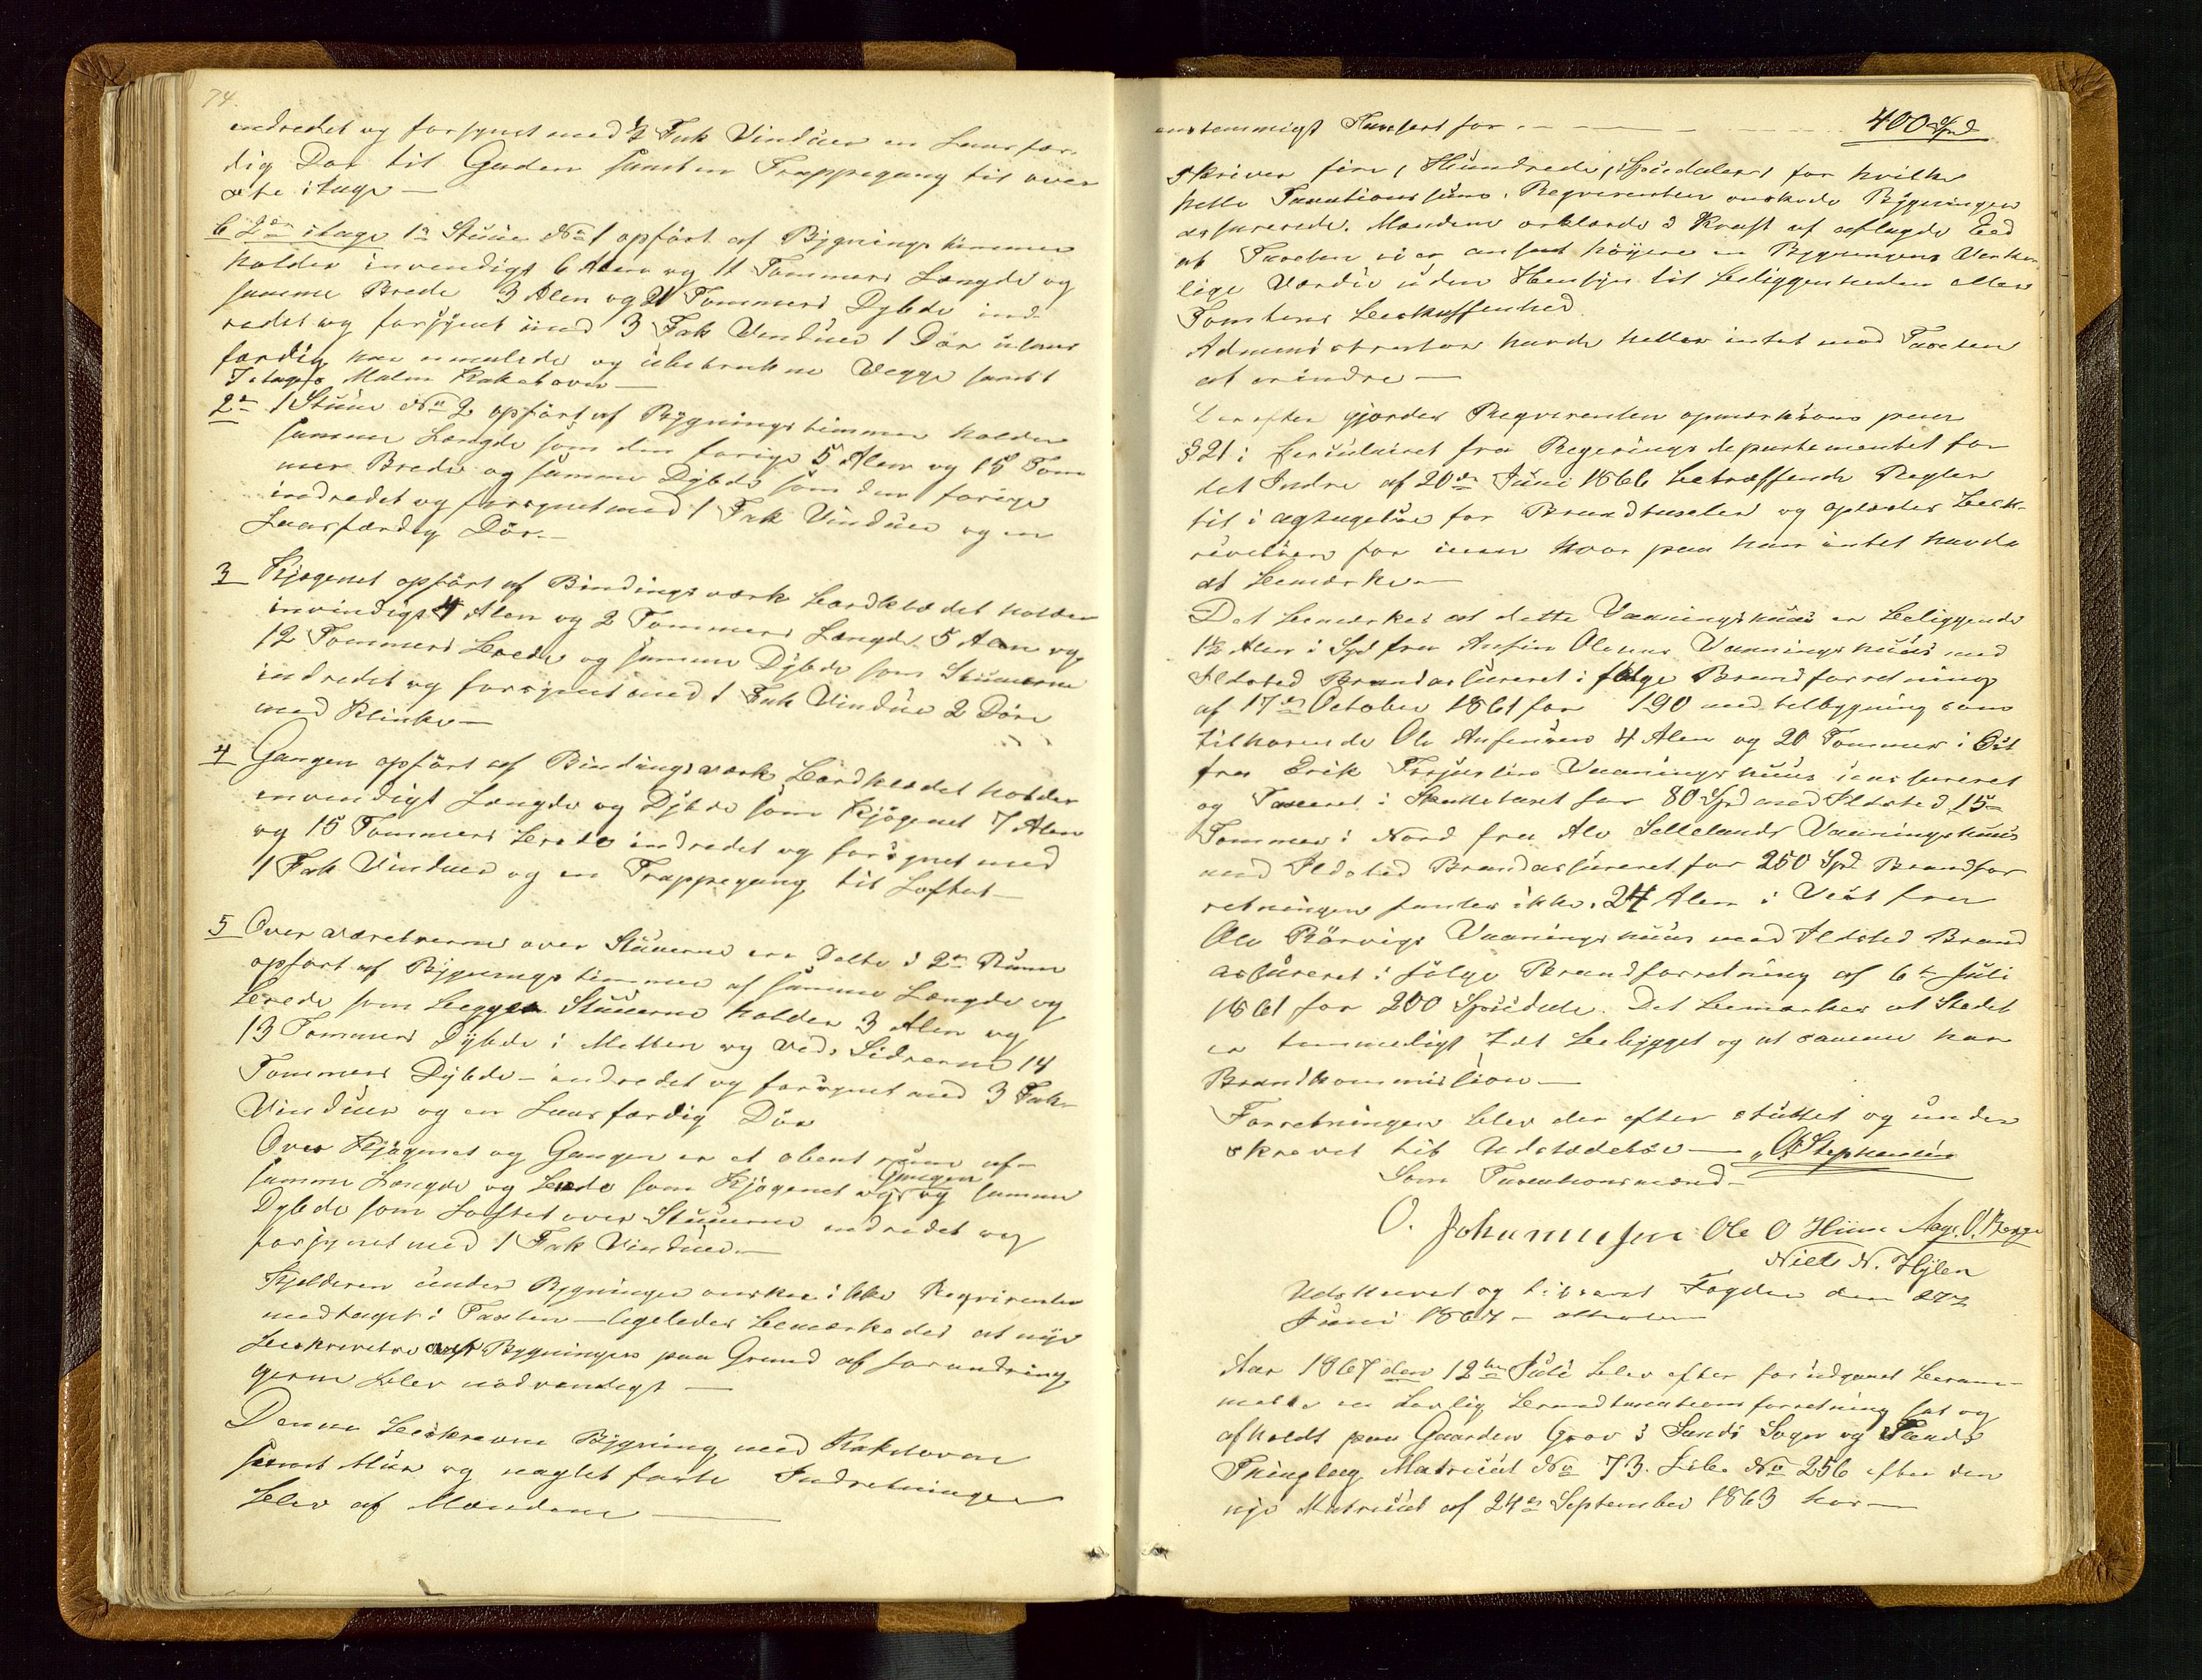 74.
indredet og forsynet med 2 Fak Vinduer en Laasfær-
dig Dør til Gaden samt en Trappegang til över
ste etage —
b 2den etage 1o Stuen No 1 opført af Bygningstimmer
holder invendigt 6 Alen og 11 Tommers Længde og
samme Brede 3 Alen og 21 Tommers Dybde ind-
redet og forsynet med 3 Fak Vinduer 1 Dør
færdig har umalede og ubetrukne Vegge samt
3 etages Malm Kakelovn —
2o 1 Stue No 2 opført af Bygningstimmer holder
samme Længde som den forige 5 Alen og 15 Tom
mers Brede og samme Dybde som den forige
indredet og forsynet med 1 Fak Vinduer og en
Laasfærdig Dör. —
3 Kjøgenet opført af Bindingsværk bordklædet holder
invendigt 4 Alen og 2 Tommers Længde 5 Alen og
12 Tommers brede og samme Dybde som Stuerne
indredet og forsynet med 1 Fak Vindue 2 Döre
med Klinke —
4 Gangen opført af Bindingsværk bordklædet holder
invendigt Længde og Dybde som Kjøgenet 7 Alen
og 15 Tommers brede indredet og forsynet med
1 Fak Vinduer og en Trappegang til Loftet —
5 Over værelserne over Stuerne ere delte i 2de Rum
opført af Bygningstimmer af samme Længde og
brede som begge Stuerne holder 3 Alen og
13 Tommers Dybde i Midten og ved Sidderne 14
Tommers Dybde — indredet og forsynet med 3 Fak
Vinduer og en Laasfærdig Dör
Over Kjøgenet og Gangen er et abent rum af
samme Længde og brede som Kjøgenet og Gangen og samme
Dybde som Loftet over Stuerne indredet og
forsynet med 1 Fak Vinduer —
Kjelderen under Bygningen önskes ikke Reqvirenten
medtaget i Taxten — ligeledes bemærkedes at nye
beskrivelse over Bygningen paa Grund af forandring
gerne blev nødvendigt —
Denne beskrevne Bygning med Kakelovne
samt Mur og naglet faste Indretninger
blev af Mændene —
enstemmigt Taxsert for — 400 Spd
skriver fire, Hundrede, Speciedaler, for hvilke
hette Taxationssum. Reqvirenten önskede Bygningen
assurerede. Mændene erklærede i Kraft af aflagde Eed
at Taxten ei er ansat höyere en Bygningens Verke
lige Værdie uden Hensyn til beliggenheden eller
Tomtens beskaffenhed
Administrator havde heller intet mod Taxten
at erindre —
Derefter gjordes Reqvirenten opmærksom paa
§ 21 i Circulairet fra Regjeringsdepartementet for
det Indre af 20de Juni 1866 betræffende Regler
til iagtagelse for Brandtaxter og oplæstes besk-
rivelsen for ham hvor paa han intet havde
at bemærke —
Det bemærkes at dette Vaaningshuus er beliggende
1½ Alen i Syd fra Anfin Olsens Vaaningshuus med
Ildsted Brandassureret i følge Brandforretning
af 17de October 1861 for 190 med tilbygning som
tilhörende Ole Anfinsen 4 Alen og 20 Tommer i Öst
fra Erik Vaaningshuus
og Taxeret i Skattetaxt for 80 Spd med Ildsted 15
Tommer i Nord fra Ole Sellelands Vaaningshuus
med Ildsted Brandassureret for 250 Spd Brandfor
retningen fantes ikke. 24 Alen i Vest fra
Ole Rörvigs Vaaningshuus med Ildsted Brand
assureret i følge Brandforretning af 6te Juli
1861 for 200 Speciedale. Det bemærkes at Stedet
er temmeligt tæt bebygget og at samme har
Brandkommission —
Forretningen blev der efter sluttet og under
skrevet til Udstedelse — O. Stephensen
Som Taxationsmænd —
O. Johannesen Ole O Hiim Aage O. Berge
Niels N. Hylen
Udskrevet og leveret Fogden den 27
Juni 1867 —
Aar 1867 den 12te Juli blev efter forudgaaet beram-
melse en Lovlig brandtaxationsforretning sat og
afholdt paa Gaarden Grov i Sands Sogn og Sands
Thinglag Matricul No 73. Löbe No 256 efter den
nye Matricul af 24de September 1863 hos —